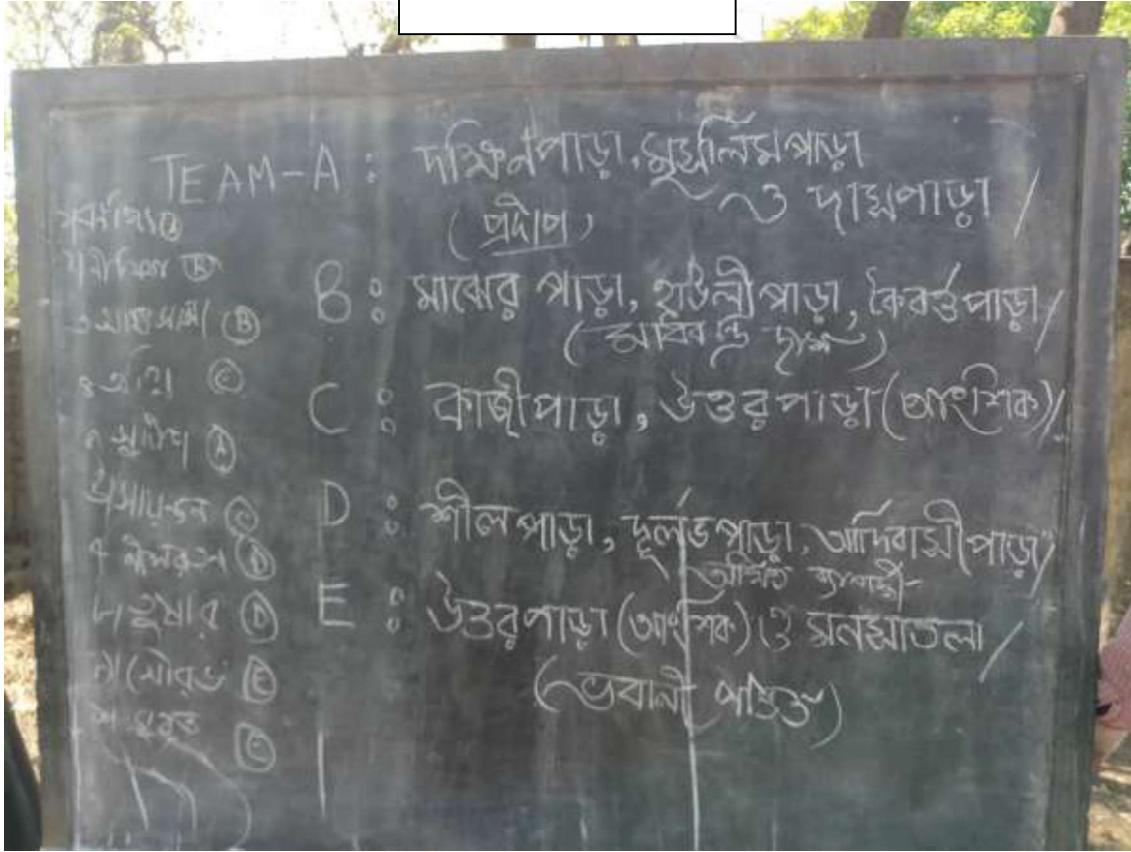 TEAM-A : দক্ষিনপাড়া, মুসলিমপাড়া
ও দাসপাড়া /
(প্রদীপ)
B : মাঝের পাড়া, হাটলীপাড়া, কৈবর্ত্তপাড়া /
C : কাজীপাড়া, উত্তরপাড়া (আংশিক) /
D : শীলপাড়া, দূর্লভপাড়া, আদিবাসীপাড়া /
E : উত্তরপাড়া (আংশিক) ও মনসাতলা /
(ভবানী পণ্ডিত)
(A)
(B)
(B)
(C)
সুদীপ (A)
সায়ন্তন (C)
৭ (D)
৮। তুষার (D)
৯। সৌরভ (E)
(E)